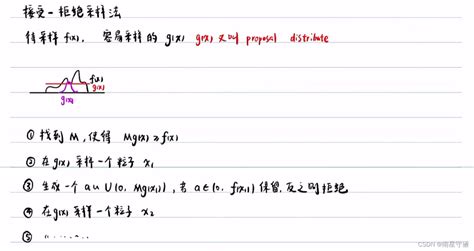 接受-拒绝采样法
待采样 f(x), 容易采样的 g(x) g(x)又叫 proposal distribute
f(x)
g(x)
g(x)
① 找到 M, 使得 Mg(x) ≥ f(x)
② 在g(x) 采样一个粒子 x₁
③ 生成一个 a ∪ (0, Mg(x₁)), 若 a∈(0, f(x₁)) 保留, 反之则拒绝
④ 在g(x) 采样一个粒子 x₂
⑤ ........